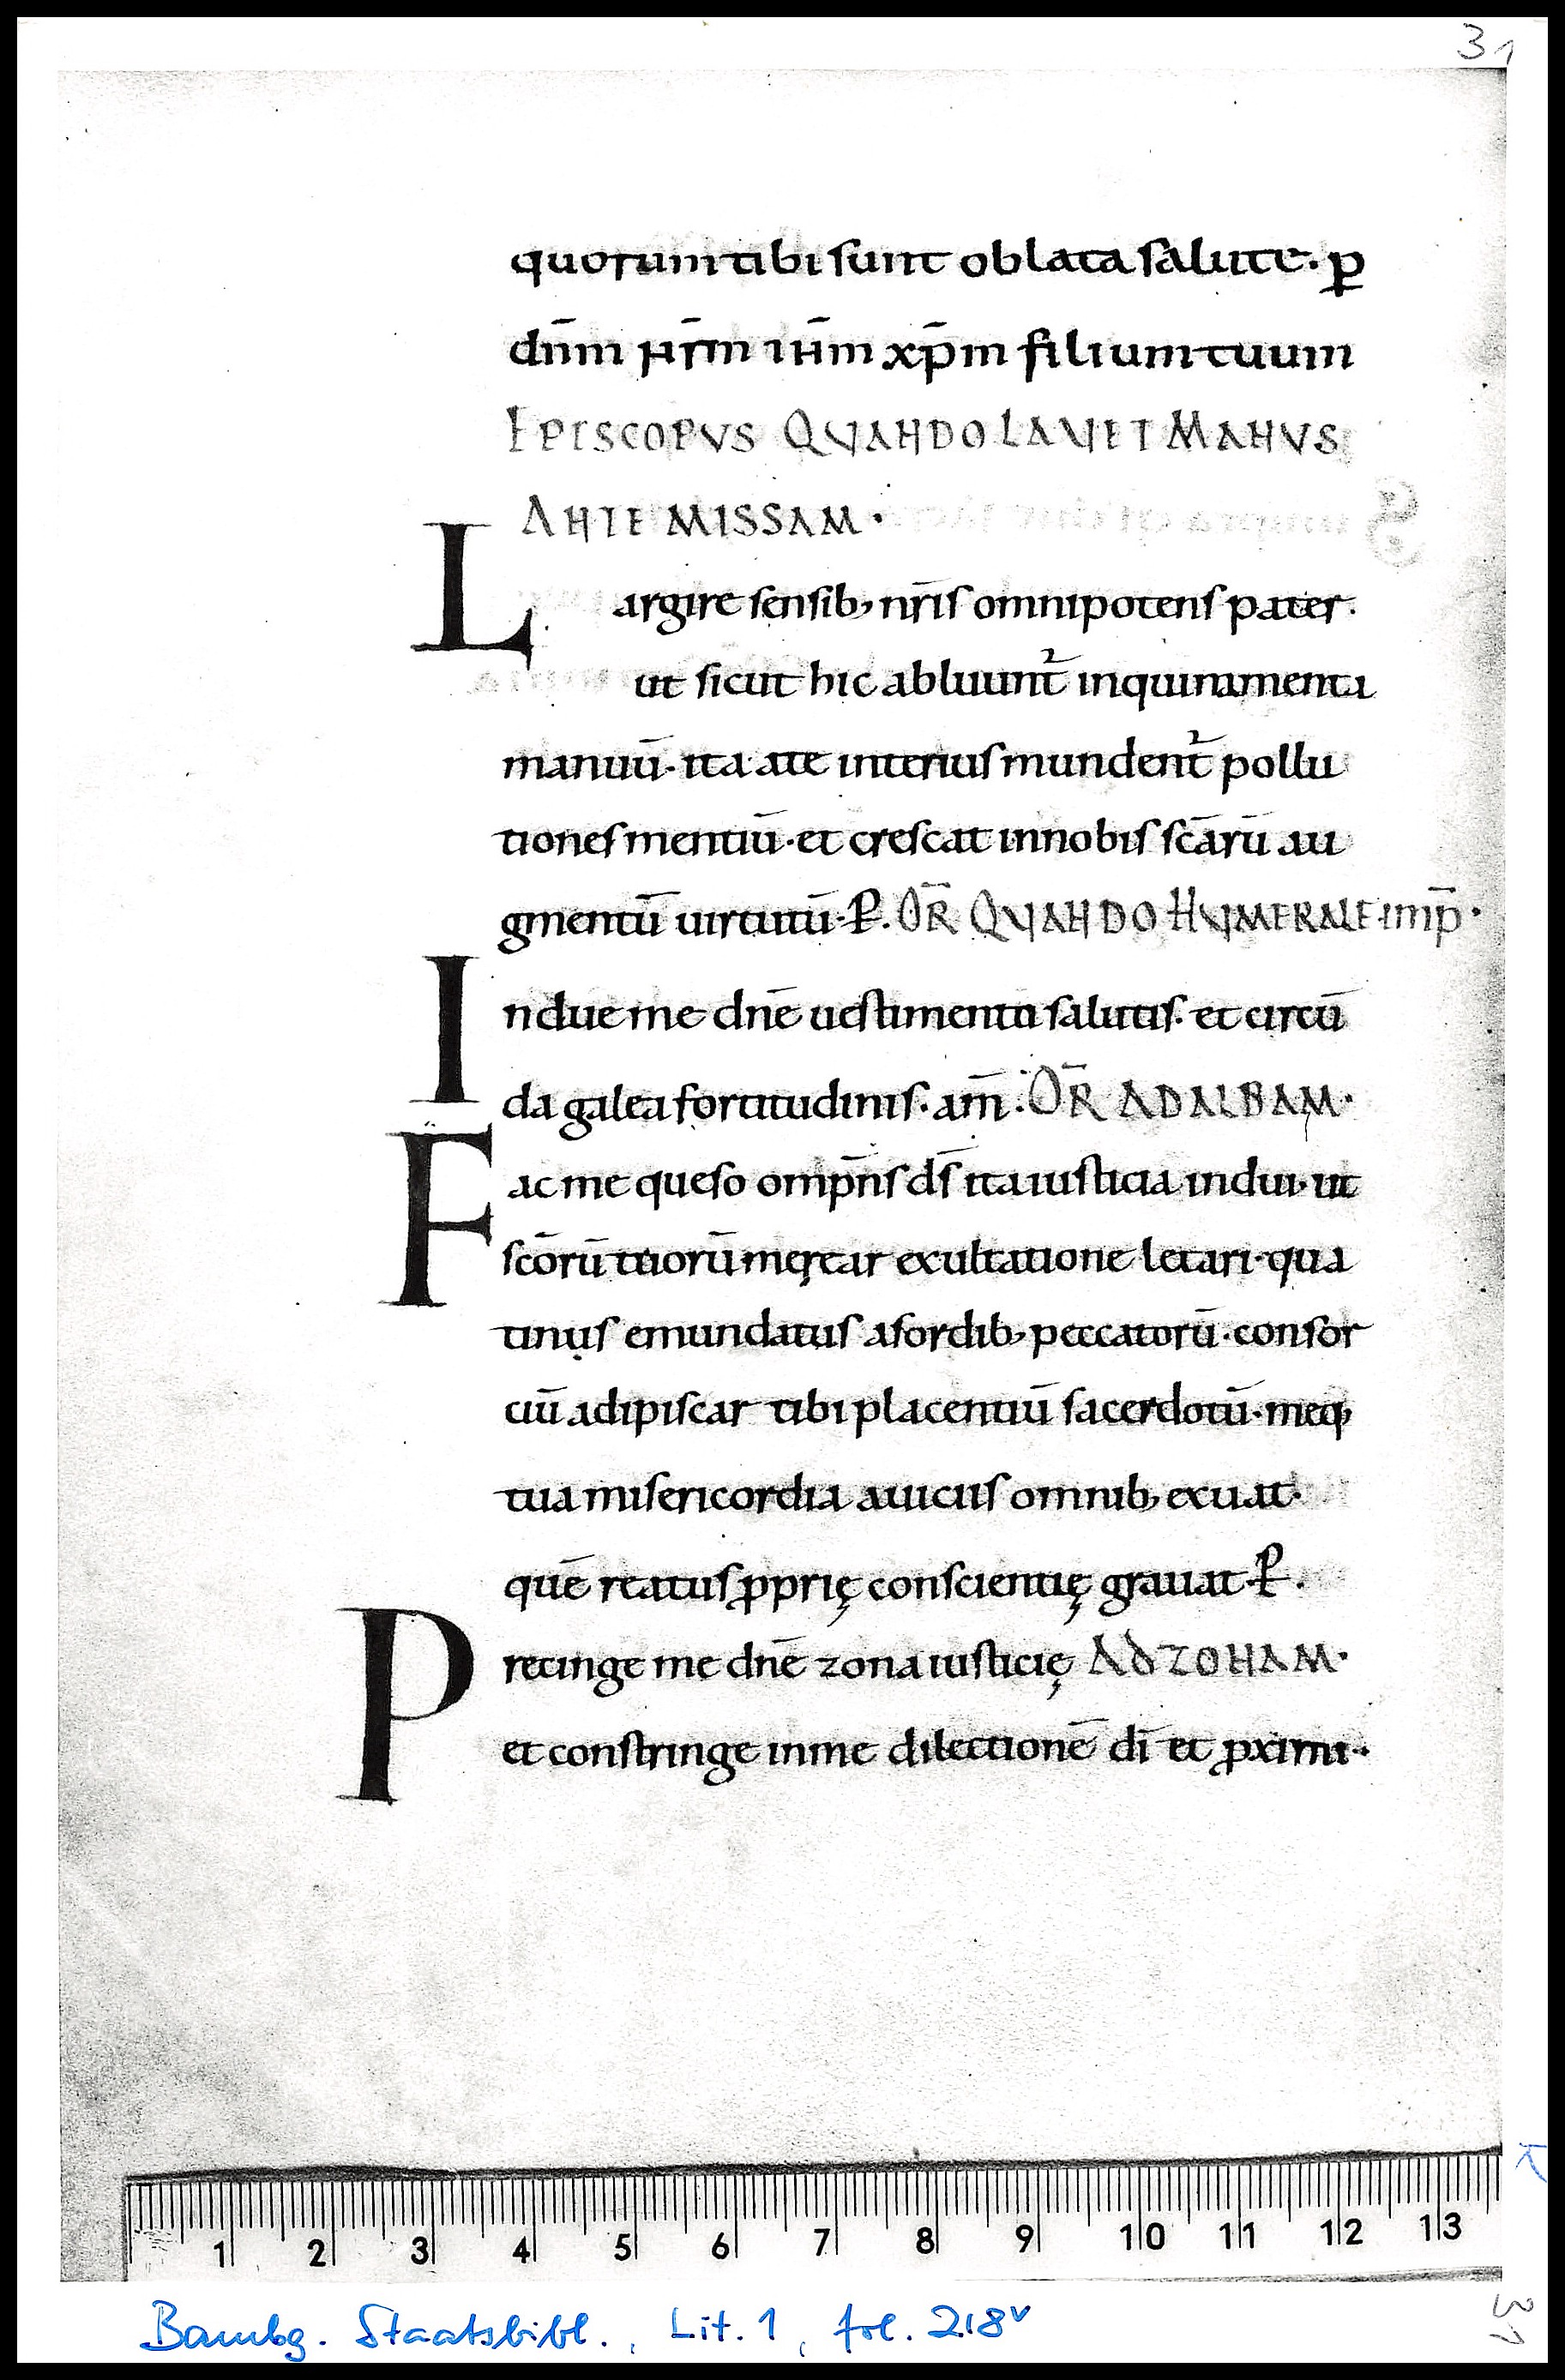 31
quorum tibi sunt oblata salute· ꝑ
dn̄m nr̄m ihm̄ xp̄m filium tuum
EPISCOPVS QVANDO LAVET MANVS
ANTE MISSAM·
Largire sensib; nr̄is omnipotens pater·
ut sicut hic abluunt᷑ inquinamenta
manuū· ita a te interius mundent᷑ pollu
tiones mentiū· et crescat in nobis sc̄arū au
gmentū uirtutū· P. OR̄ QVANDO HVMERALE imp̄·
Indue me dn̄e uestimento salutis· et circū
da galea fortitudinis· am̄· OR̄ AD ALBAM·
Fac me queso omp̄ns ds̄ ita iusticia indui· ut
sc̄orū tuorū merear exultatione letari· qua
tinus emundatus a sordib; peccatorū· consor
ciū adipiscar tibi placentiū sacerdotū· meq;
tua misericordia a uiciis omnib; exuat·
quē reatus ꝓprię conscientię grauat· P.
Precinge me dn̄e zona iusticię AD ZONAM·
et constringe in me dilectionē dī et ꝓximi·
1 2 3 4 5 6 7 8 9 10 11 12 13
Bambg. Staatsbibl., Lit. 1, fol. 218v
31